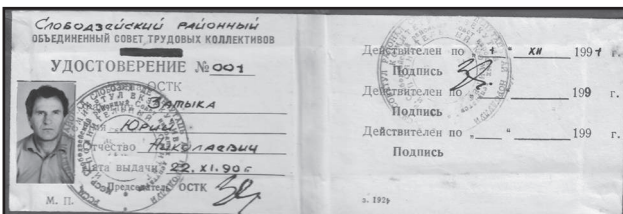 Слободзейский районный
ОБЪЕДИНЕННЫЙ СОВЕТ ТРУДОВЫХ КОЛЛЕКТИВОВ
УДОСТОВЕРЕНИЕ № 001
ОСТК
Затыка
Юрий
Отчество Николаевич
Дата выдачи 22.XI.90г
Председатель ОСТК
М. П.
Действителен по „1“ XII 1991 г.
Подпись
Действителен по 199 г.
Подпись
Действителен по „ “ 199 г.
Подпись
з. 192